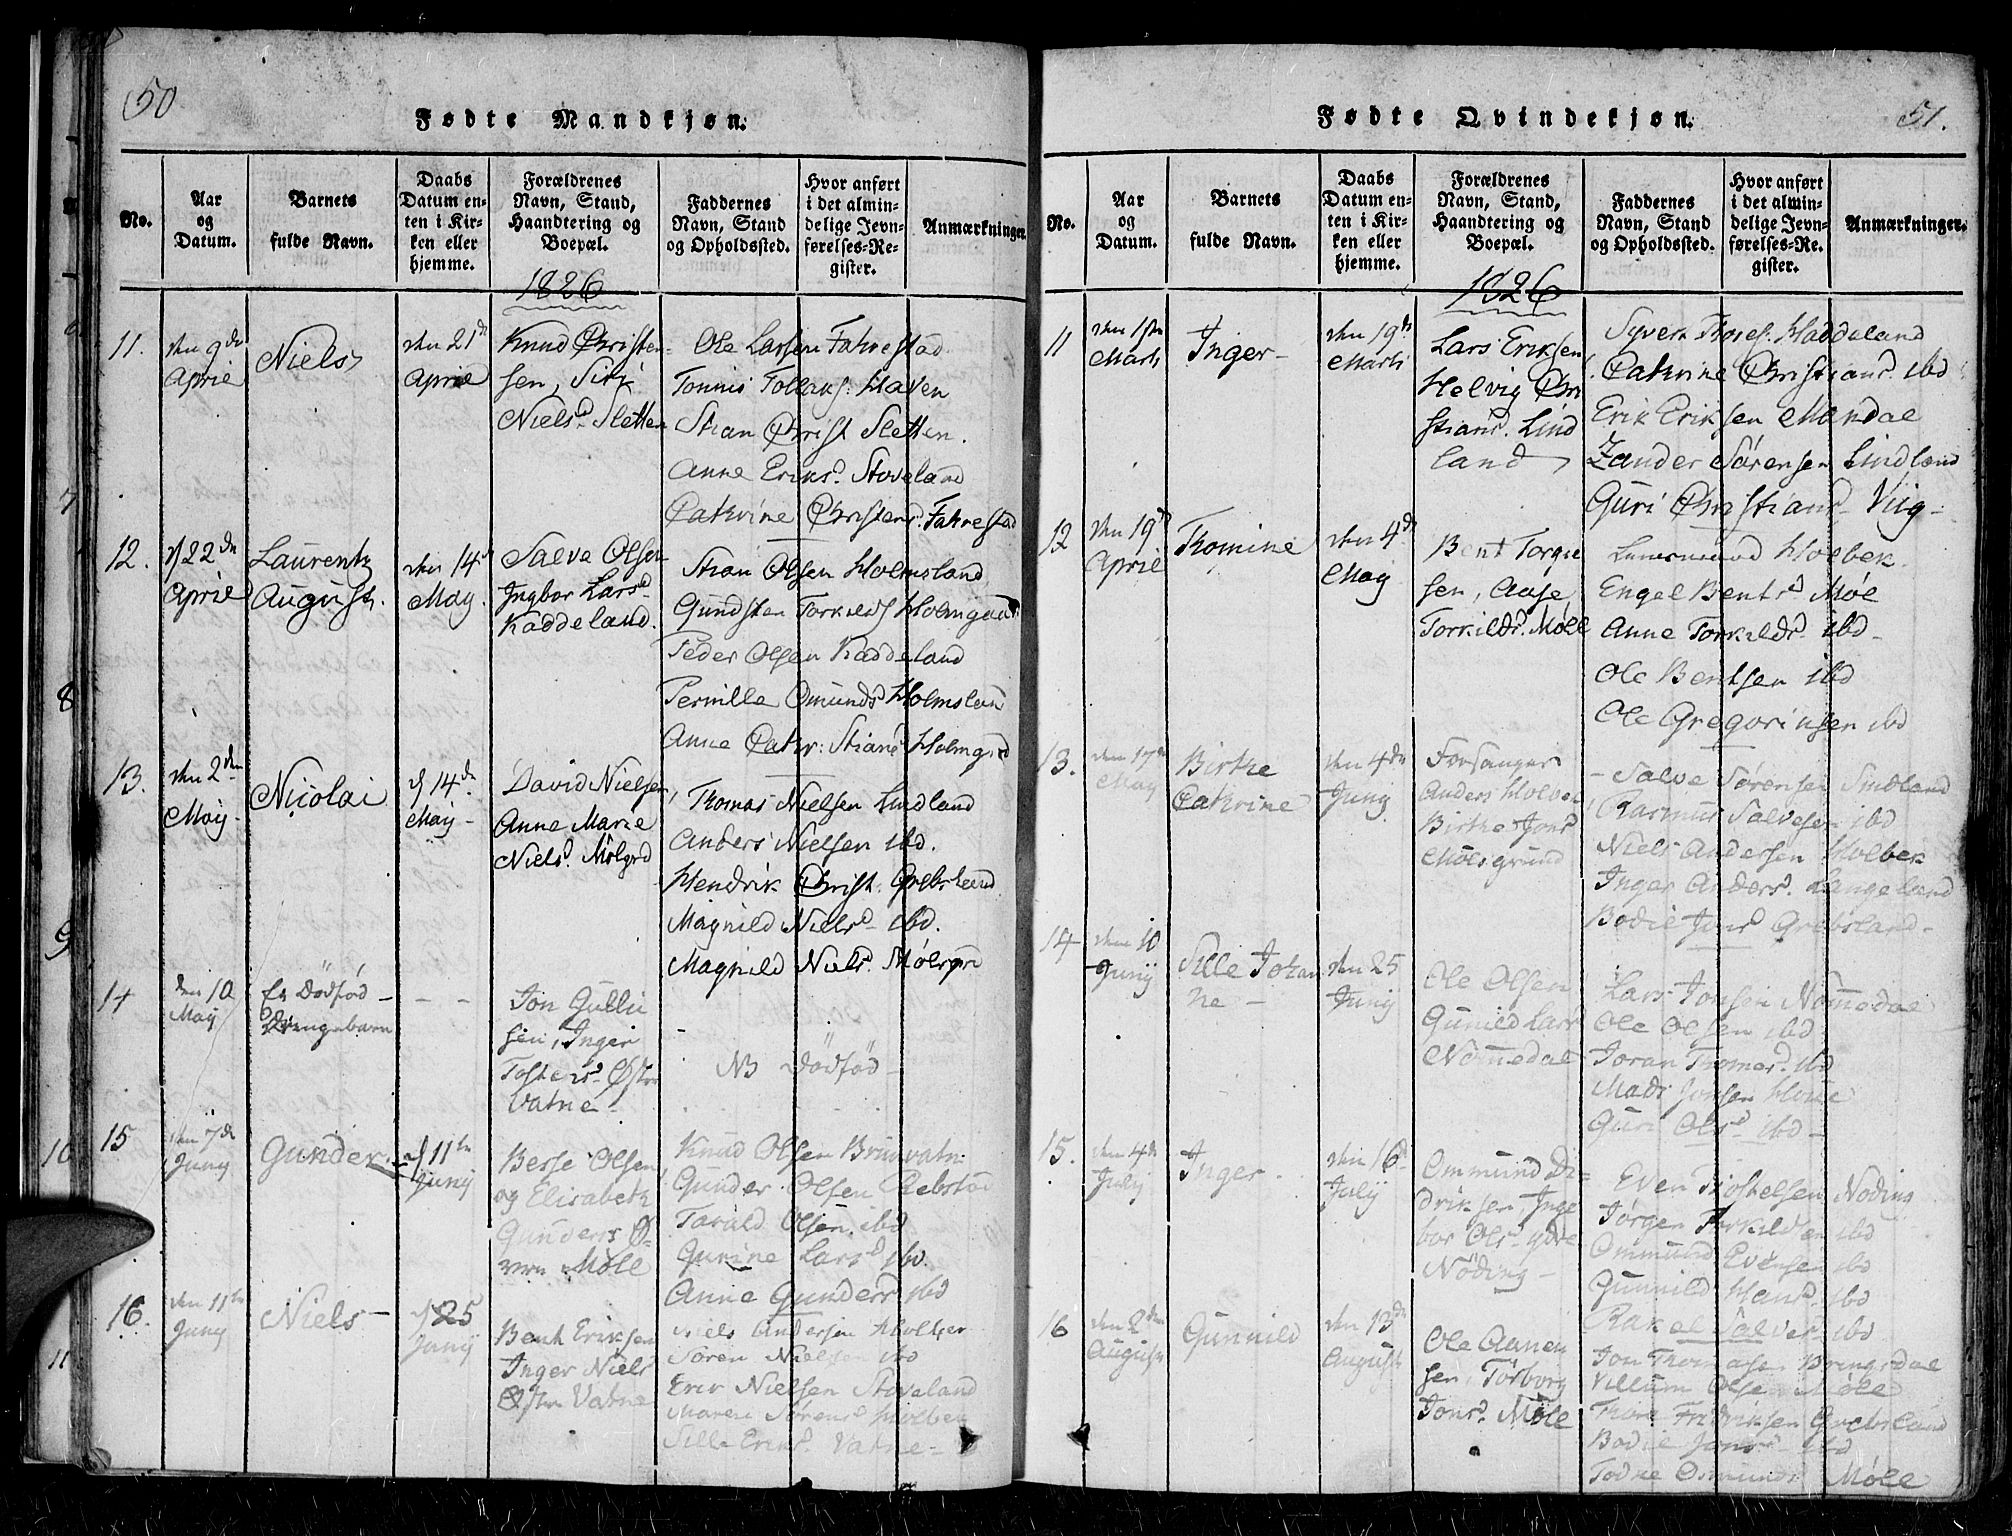 50
Fødte Mandkjøn.
No.
Aar
og
Datum.
Barnets
fulde Navn.
Daabs
Datum en-
ten i Kir-
ken eller
hjemme.
Forældrenes
Navn, Stand,
Haandtering og
Boepæl.
Faddernes
Navn, Stand
og Opholdssted.
Hvor anført
i det almin-
delige Jevn-
førelses-Re-
gister.
Anmærkninger.
1826
11.
den 9de
April
Niels
den 21de
April
Knud Christen-
sen, Siri
Nielsd. Sletten
Ole Larsen Fahrestad
Tonnis Tollaks: Haven
Stian Christ Sletten.
Anne Eriksd. Stoveland
Cathrine Christens. Fahrestad
12.
d 22de
April
Laurentz
August.
den 14de
May.
Salve Olsen
Ingbor Larsd.
Kaddeland.
Stian Olsen Holmsland
Gundsten Torkilds Holmgaar
Peder Olsen Kaddeland
Pernille Omunds Holmsland
Anne Cathr: Stians Holmgrd
13.
den 2den
May.
Nicolai
d 14de
May-
David Nielsen
Anne Marie
Nielsd. Mölgrd
Thomas Nielsen Lindland
Anders Nielsen ibd.
Hendrik Christ. Grebsland
Magnild Nielsd. ibd.
Magnild Niels. Mølegrd
14
den 10
May
En Dödfød
Drengebarn
- -
Jon Gulli
sen, Inger
Tostensd. Østre
Vatne-
NB Dödföd-
15
den 7de
Juny
Gunder.
d 11te
Junij
Berse Olsen
og Elisabeth
Gunders Ø-
vre Møle
Knud Olsen Bruuvatn
Gunder Olsen Rebstød
Tarald Olsen ibd
Gurine Larsd ibd.
Anne Gunders ibd
16.
den 11te
Juny
Niels-
d 25
Junij
Bent Eriksen
Inger Niels
Østre Vatne
Niels Andersen Holbek
Søren Nielsen ibd
Erik Nielsen Stoveland
Maren Sørensd Holbek
Sille Eriksd. Vatne-
51.
Fødte Qvindekjøn.
No.
Aar
og
Datum.
Barnets
fulde Navn.
Daabs
Datum en-
ten i Kir-
ken eller
hjemme.
Forældrenes
Navn, Stand,
Haandtering og
Boepæl.
Faddernes
Navn, Stand
og Opholdssted.
Hvor anført
i det almin-
delige Jevn-
førelses-Re-
gister.
Anmærkninger.
1826
11
den 1ste
Marts
Inger-
den 19de
Marts
Lars Eriksen
Helvig Chri
stiansd. Lind
land
Syvert Haddeland
Cathrine Christians. ibd
Erik Eriksen Mandal
Zander Sörensen Lindland
Guri Christians Viig-
12
den 19de
April
Thomine
den 4de
May
Bent Torgie
sen, Aase
Torkilds. Møll
Lensmand Holbek.
Engel Bentsd Møl
Anne Torkilds. ibd-
Ole Bentsen ibd
Ole Gregoriusen ibd
13.
den 17de
May
Birthe
Cathrine
den 4de
Junij
Forsanger
Anders Holbek
Birthe Jons
Mölsgrund
Salve Sørensen Smedland
Rasmus Salvesen ibd
Niels Andersen Holbek
Inger Anders. Langeland
Bodil Jons Grebsland-
14
den 10
Junij
Sille Johan
ne-
den 25
Junij
Ole Olsen
Gunild Lars
Nomedal
Lars Jonsen Nomedal
Ole Olsen ibd
Joran Thomasd. ibd
Mads Jonsen Houe
Guri Olsd ibd-
15.
den 4de
July
Inger.
den 16de
Julij
Ommund Di-
driksen, Inge
bor Ols. ydre
Nöding-
Even Noding
Jörgen Torkildsen ibd
Ommund Evensen ibd
Gunnild Hans. ibd
Rakel Salves ibd
16
den 2den
August
Gunnild
den 13de
August
Ole Aanen
sen, Torborg
Jonsd. Møle
Jon Thomasen Bringsdal
Villum Olsen Møle
Thore Fridriksen Grebsland
Bodil Jonsd ibd
Todne Osmunds Møle
7
8
9
10
11